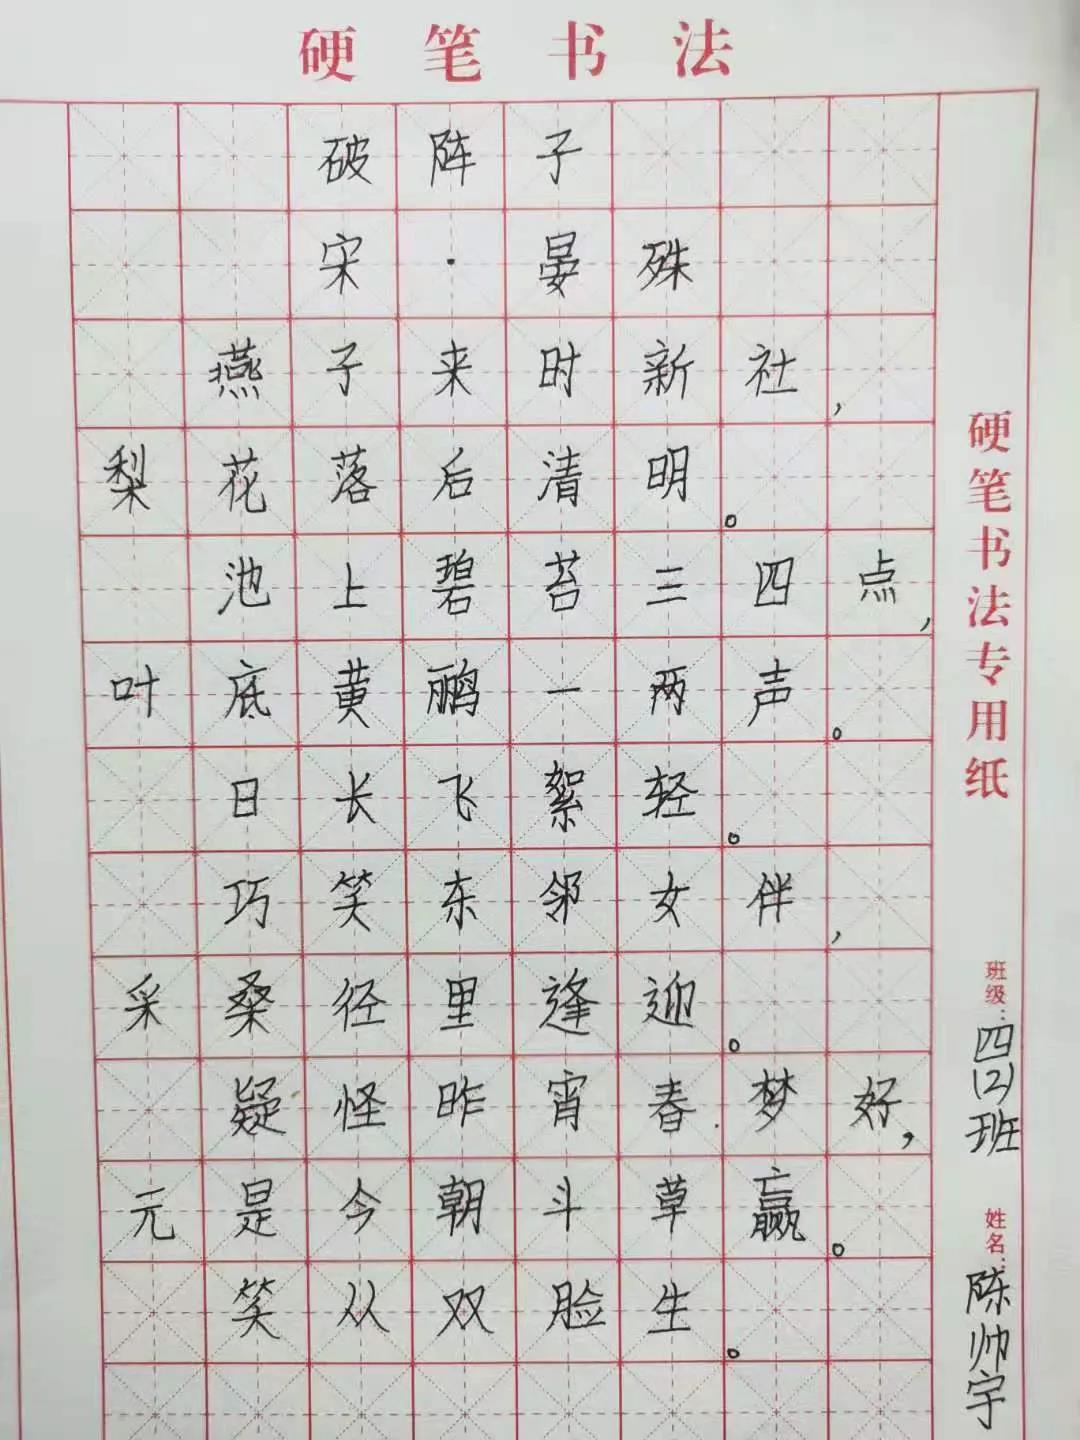 硬笔书法
破阵子
宋·晏殊
燕子来时新社，
梨花落后清明。
池上碧苔三四点，
叶底黄鹂一两声。
日长飞絮轻。
巧笑东邻女伴，
采桑径里逢迎。
疑怪昨宵春梦好，
元是今朝斗草赢。
笑从双脸生。
硬笔书法专用纸
班级：四(2)班
姓名：陈帅宇